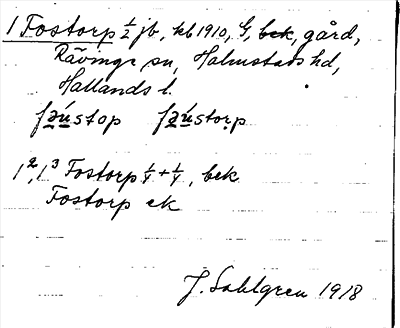 1 Fostorp ½ jb, kb 1910, G, bek, gård,
Rävinge sn, Halmstads hd,
Hallands l.
fɷústop fɷústorp
1², 1³ Fostorp ¼ + ¼, bek
Fostorp ek
J. Sahlgren 1918